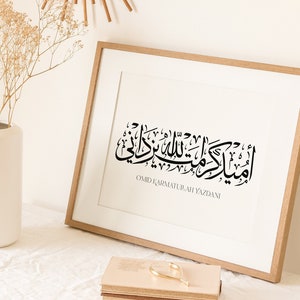 أميد كرامت لله يزداني
OMID KARMATULAH YAZDANI